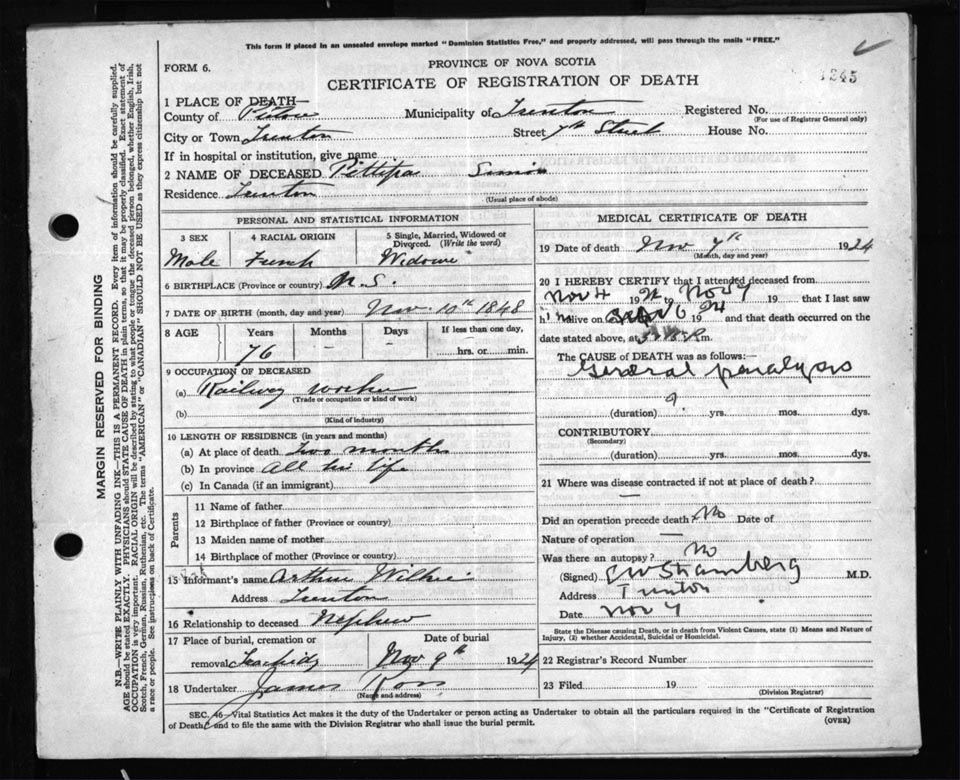 This form if placed in an unsealed envelope marked "Dominion Statistics Free," and properly addressed, will pass through the mails "FREE."
FORM 6.
PROVINCE OF NOVA SCOTIA
CERTIFICATE OF REGISTRATION OF DEATH
1245
1 PLACE OF DEATH—
County of Pictou Municipality of Trenton Registered No.
(For use of Registrar General only)
City or Town Trenton Street 7th Street House No.
If in hospital or institution, give name
2 NAME OF DECEASED Pettipas Simon
Residence Trenton
(Usual place of abode)
PERSONAL AND STATISTICAL INFORMATION
3 SEX 4 RACIAL ORIGIN 5 Single, Married, Widowed or Divorced. (Write the word)
Male French Widower
6 BIRTHPLACE (Province or country) N.S.
7 DATE OF BIRTH (month, day and year) Nov. 10th 1848
8 AGE Years Months Days If less than one day,
76 — — hrs. or min.
9 OCCUPATION OF DECEASED
(a) Railway worker
(Trade or occupation or kind of work)
(b)
(Kind of industry)
10 LENGTH OF RESIDENCE (in years and months)
(a) At place of death two months
(b) In province All his life
(c) In Canada (if an immigrant)
Parents
11 Name of father
12 Birthplace of father (Province or country)
13 Maiden name of mother
14 Birthplace of mother (Province or country)
15 Informant's name Arthur Wilkie
Address Trenton
16 Relationship to deceased Nephew
17 Place of burial, cremation or removal Date of burial
Nov 9th 1924
18 Undertaker James Ross
(Name and address)
MEDICAL CERTIFICATE OF DEATH
19 Date of death Nov 7th 1924
(Month, day and year)
20 I HEREBY CERTIFY that I attended deceased from
Nov 4 1924 to Nov 7 19 that I last saw
him alive on 6 19 24 and that death occurred on the
date stated above, at m.
The CAUSE of DEATH was as follows:—
General paralysis
(duration) yrs. mos. dys.
CONTRIBUTORY
(Secondary)
(duration) yrs. mos. dys.
21 Where was disease contracted if not at place of death?
—
Did an operation precede death? No Date of
Nature of operation —
Was there an autopsy? No
(Signed) M.D.
Address Trenton
Date Nov 7
State the Disease causing Death, or in death from Violent Causes, state (1) Means and Nature of
Injury, (2) whether Accidental, Suicidal or Homicidal.
22 Registrar's Record Number
23 Filed 19
(Division Registrar)
SEC. 46—Vital Statistics Act makes it the duty of the Undertaker or person acting as Undertaker to obtain all the particulars required in the "Certificate of Registration
of Death," and to file the same with the Division Registrar who shall issue the burial permit.
(OVER)
MARGIN RESERVED FOR BINDING
N.B.—WRITE PLAINLY WITH UNFADING INK—THIS IS A PERMANENT RECORD. Every item of information should be carefully supplied.
AGE should be stated EXACTLY. PHYSICIANS should STATE CAUSE OF DEATH in plain terms, so that it may be properly classified. Exact statement of
OCCUPATION is very important. RACIAL ORIGIN will be described by stating to what people or tongue the deceased person belonged, whether English, Irish,
Scotch, French, German, Russian, Ruthenian, etc. The terms "AMERICAN" or "CANADIAN" SHOULD NOT BE USED as they express citizenship but not
a race or people. See instructions on back of Certificate.